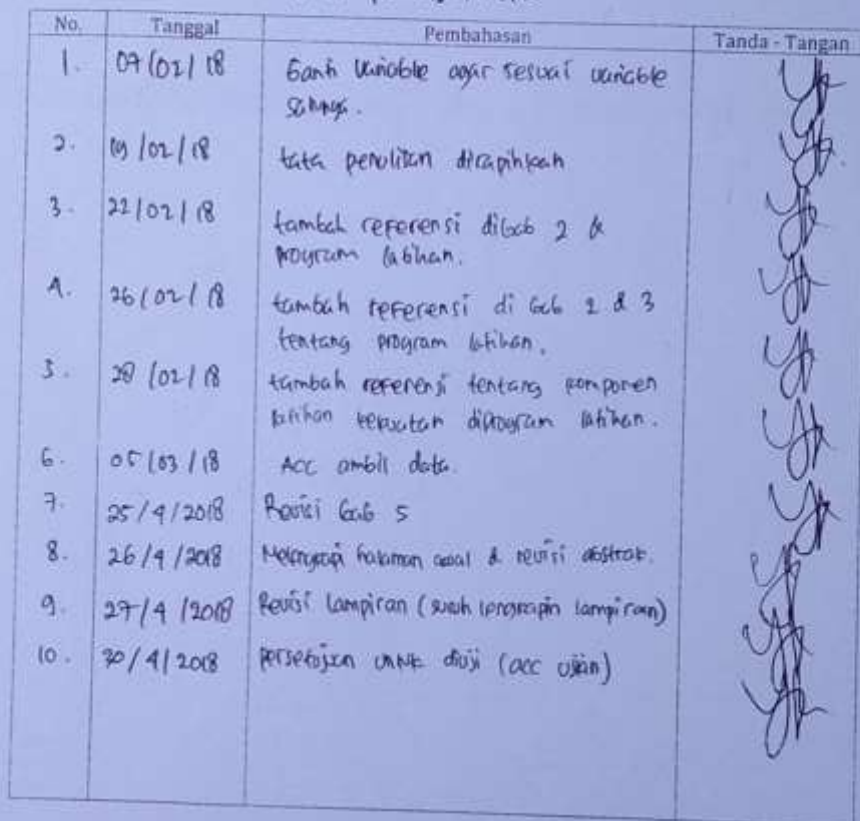 No. Tanggal Pembahasan Tanda - Tangan
1. 07/02/18 Ganti Variable agar sesuai variable
2. 19/02/18 tata penulisan dirapihkan
3. 22/02/18 tambah referensi dibab 2 &
program latihan.
4. 26/02/18 tambah referensi di bab 2 & 3
tentang program latihan.
5. 28/02/18 tambah referensi tentang komponen
latihan kekuatan diprogram latihan.
6. 05/03/18 ACC ambil data.
7. 25/4/2018 Revisi bab 5
8. 26/4/2018 Melengkapi halaman awal & revisi abstrak.
9. 27/4/2018 Revisi Lampiran (suruh lengkapin lampiran)
10. 30/4/2018 persetujuan untuk diuji (acc ujian)